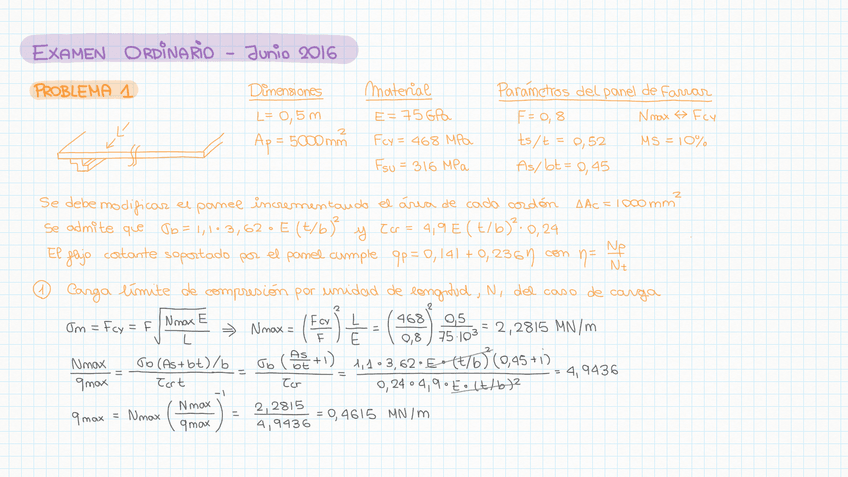 EXAMEN ORDINARIO - Junio 2016
PROBLEMA 1
Dimensiones
L = 0,5 m
Ap = 5000 mm²
Material
E = 75 GPa
Fcy = 468 MPa
Fsu = 316 MPa
Parámetros del panel de Farrar
F = 0,8 Nmax ↔ Fcy
ts/t = 0,52 MS = 10%
As/bt = 0,45
L
Se debe modificar el panel incrementando el área de cada cordón ΔAc = 1000 mm²
Se admite que σb = 1,1 · 3,62 · E (t/b)² y τcr = 4,9 E (t/b)² · 0,24
El flujo cortante soportado por el panel cumple qp = 0,141 + 0,236η con η = Np/Nt
① Carga límite de compresión por unidad de longitud, N, del caso de carga
σm = Fcy = F √(Nmax E / L) ⇒ Nmax = (Fcy/F)² L/E = (468/0,8)² 0,5/75·10³ = 2,2815 MN/m
Nmax/qmax = σb (As+bt)/b / τcr t = σb (As/bt + 1) / τcr = 1,1 · 3,62 · E · (t/b)² (0,45+1) / 0,24 · 4,9 · E · (t/b)² = 4,9436
qmax = Nmax (Nmax/qmax)⁻¹ = 2,2815/4,9436 = 0,4615 MN/m